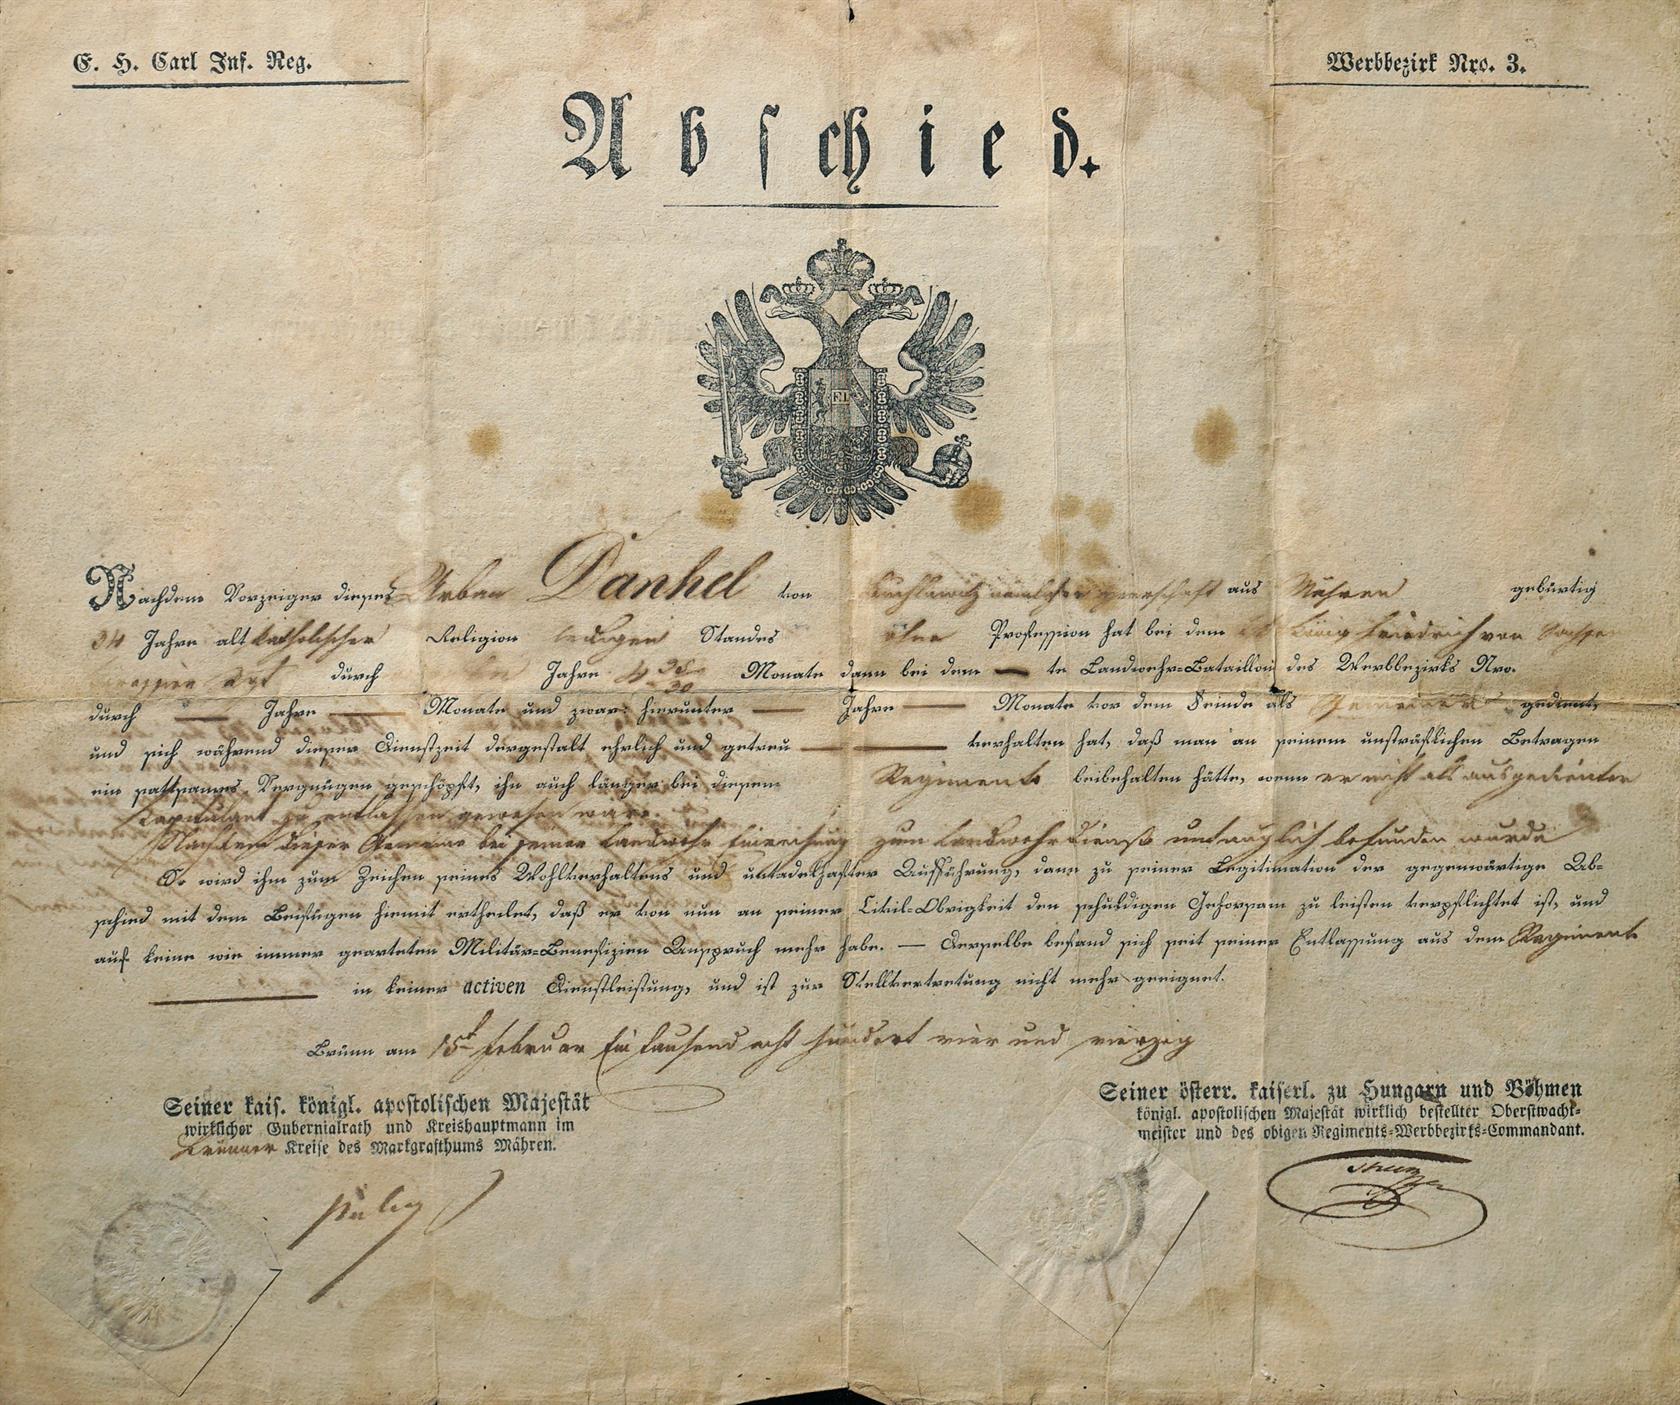 E. H. Carl Inf. Reg.
Werbbezirk Nro. 3.
Abschied.
Nachdem Vorzeiger dieses Urban Danhel von aus Mähren gebürtig
34 Jahre alt katholischer Religion ledigen Standes ohne Profession hat bei dem König Friedrich von Sachsen
durch Jahre Monate dann bei dem — te Landwehr-Bataillon des Werbbezirks Nro.
durch — Jahre — Monate und zwar: hierunter — Jahre — Monate vor dem Feinde als Gemeiner gedient,
und sich während dieser Dienstzeit dergestalt ehrlich und getreu — — verhalten hat, daß man an seinem unsträflichen Betragen
ein sattsames Vergnügen geschöpft, ihn auch länger bei diesem Regimente beibehalten hätte, wenn er nicht als ausgedienter
Kapitulant zu entlassen gewesen wäre.
Nachdem dieser Gemeine bei seiner Landwehr Einreihung zum Landwehrdienste untauglich befunden wurde
So wird ihm zum Zeichen seines Wohlverhaltens und untadelhafter Aufführung, dann zu seiner Legitimation der gegenwärtige Ab-
schied mit dem Beifügen hiemit ertheilet, daß er von nun an seiner Civil-Obrigkeit den schuldigen Gehorsam zu leisten verpflichtet ist, und
auf keine wie immer geartete Militär-Benefizien Anspruch mehr habe. — Derselbe befand sich seit seiner Entlassung aus dem Regimente
— in keiner activen Dienstleistung, und ist zur Stellvertretung nicht mehr geeignet.
Brünn am 15t Februar Ein tausend acht hundert vier und vierzig
Seiner kais. königl. apostolischen Majestät
wirklicher Gubernialrath und Kreishauptmann im
Brünner Kreise des Markgrafthums Mähren.
Seiner österr. kaiserl. zu Hungarn und Böhmen
königl. apostolischen Majestät wirklich bestellter Oberstwacht-
meister und des obigen Regiments-Werbbezirks-Commandant.